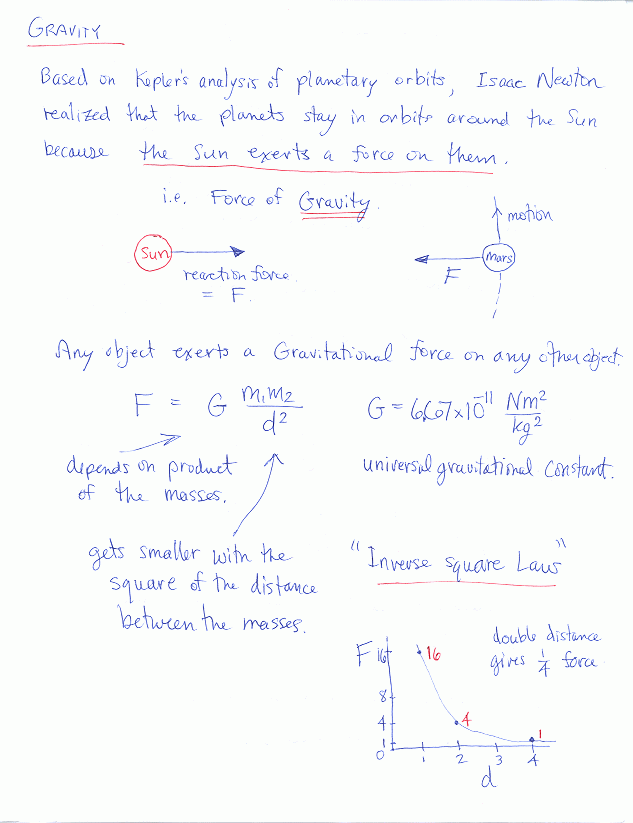 GRAVITY
Based on Kepler's analysis of planetary orbits, Isaac Newton
realized that the planets stay in orbits around the Sun
because the Sun exerts a force on them.
i.e. Force of Gravity.
motion
Sun
Mars
F
reaction force
= F.
Any object exerts a Gravitational force on any other object.
F = G m₁m₂/d²
G = 6.67×10⁻¹¹ Nm²/kg²
depends on product
of the masses.
universal gravitational constant.
gets smaller with the
square of the distance
between the masses.
"Inverse square Law"
double distance
gives 1/4 force
F
16
8
4
1
0
16
4
1
1
2
3
4
d